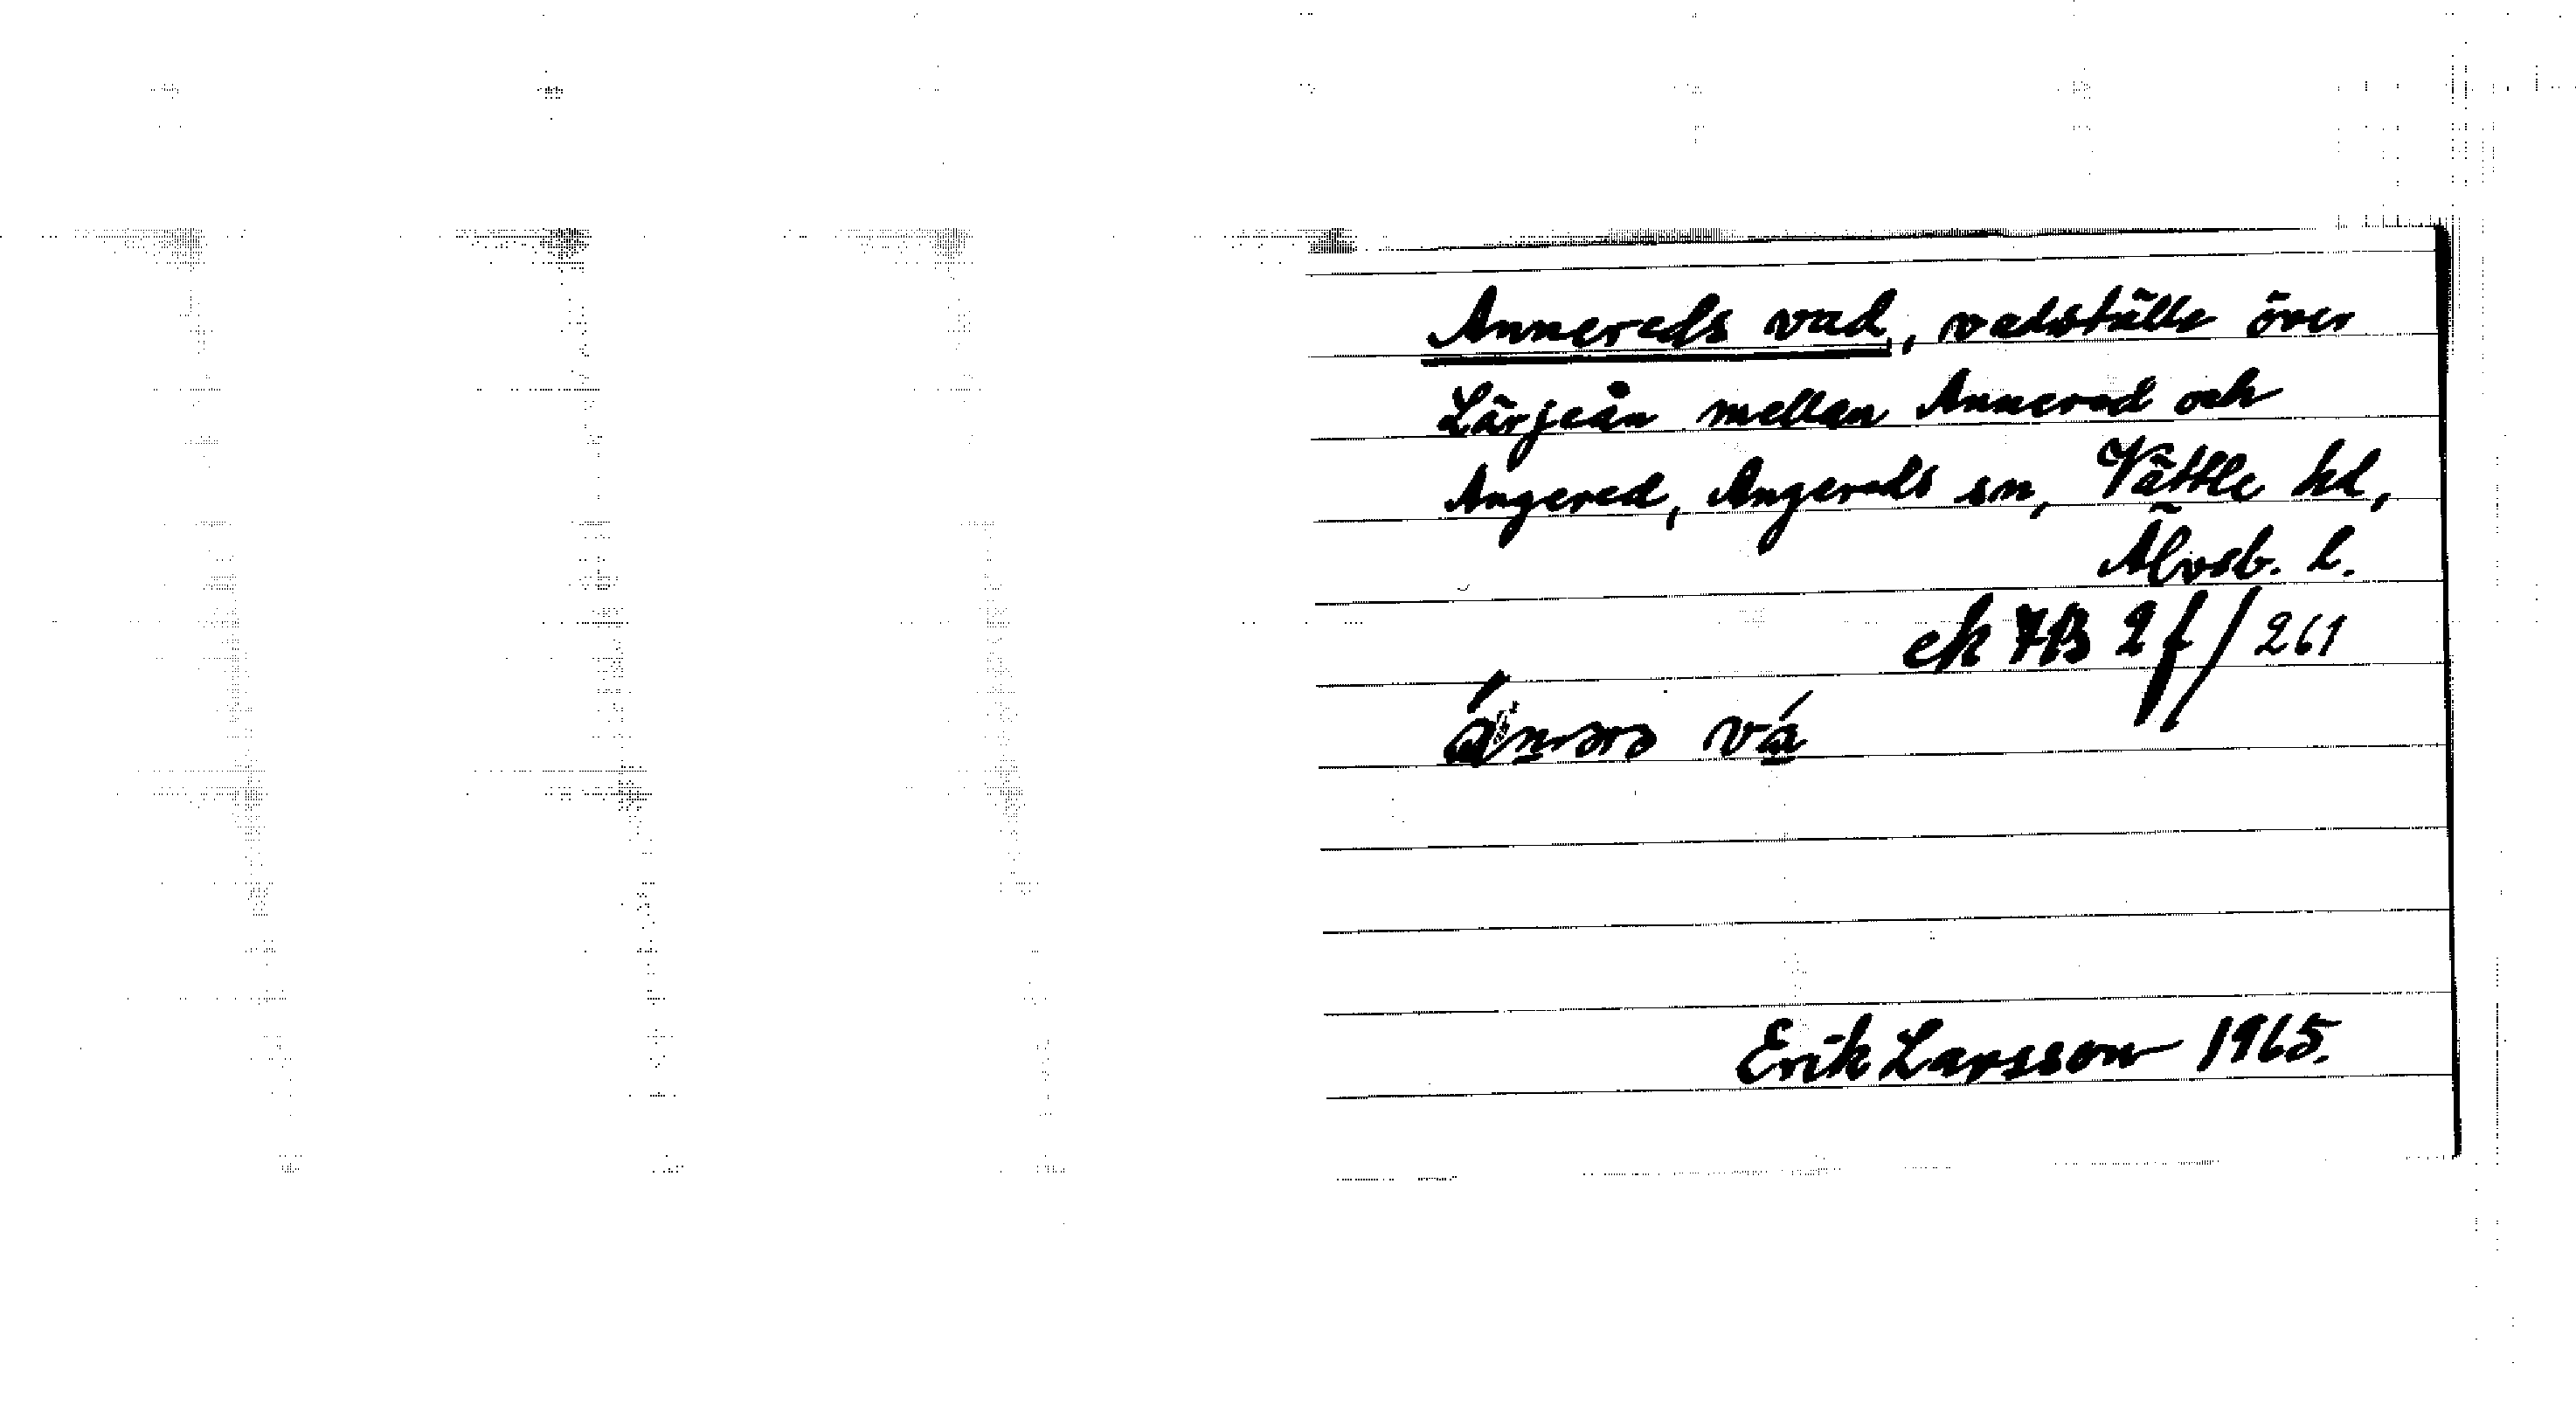 Annereds vad, vadställe över
Lärjeån mellan Annered och
Angered, Angereds sn, Vättle hd,
Älvsb. l.
ek 7B 2f/261
vá
Erik Larsson 1965.